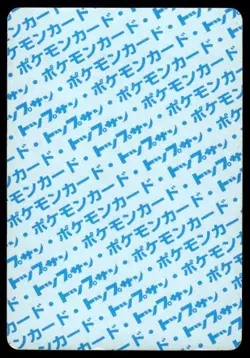 ポケモンカード・
トップサン・ポケモンカード・
ポケモンカード・トップサン・
トップサン・ポケモンカード・
ポケモンカード・トップサン・
トップサン・ポケモンカード・
ポケモンカード・トップサン・
トップサン・ポケモンカード・
ポケモンカード・トップサン・
トップサン・ポケモンカード・
ポケモンカード・トップサン・
トップサン・ポケモンカード・
ポケモンカード・トップサン・
トップサン・ポケモンカード・
ポケモンカード